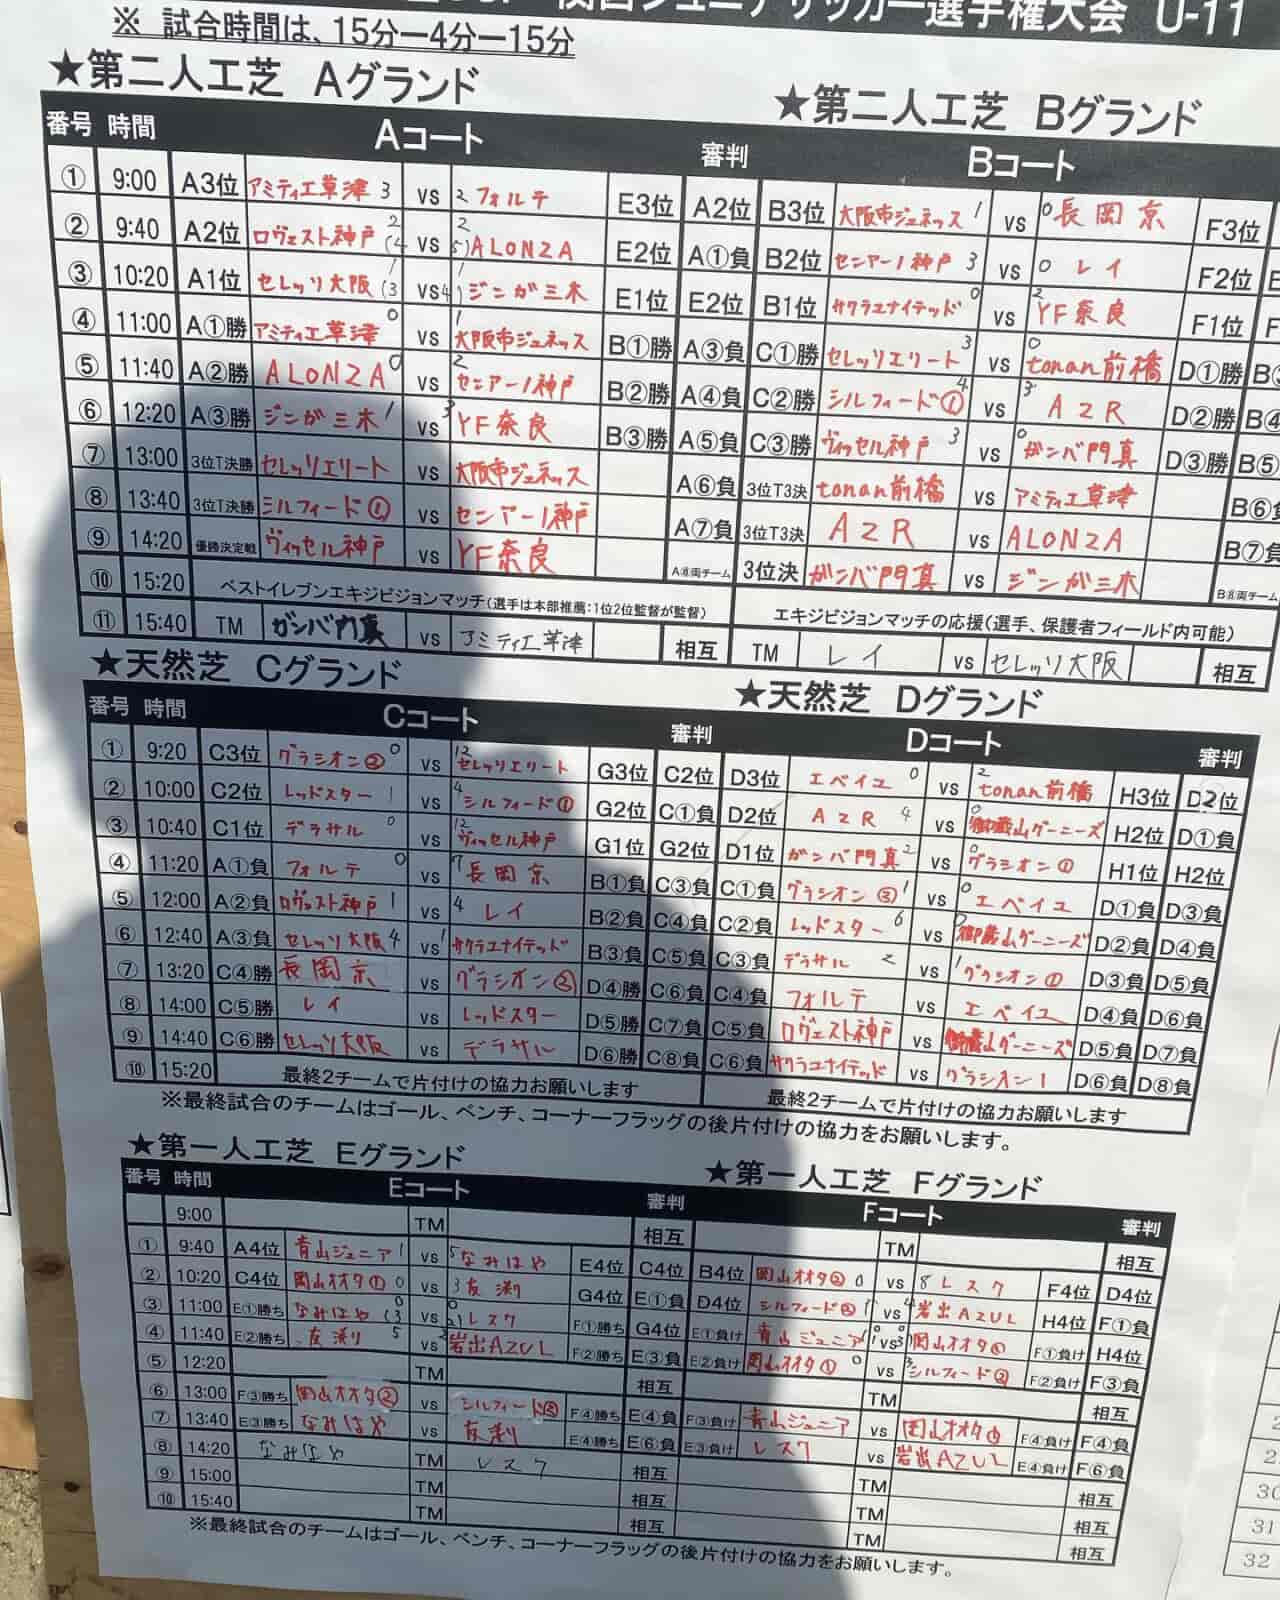 関西ジュニアサッカー選手権大会 U-11
※ 試合時間は、15分ー4分ー15分
★第二人工芝 Aグランド
★第二人工芝 Bグランド
番号 時間 Aコート 審判 Bコート
① 9:00 A3位 アミティエ草津 3 vs 2 フォルテ E3位 A2位 B3位 大阪市ジュネッス 1 vs 0 長岡京 F3位
② 9:40 A2位 ロヴェスト神戸 2 (4 vs 2 5) ALONZA E2位 A①負 B2位 センアーノ神戸 3 vs 0 レイ F2位
③ 10:20 A1位 セレッソ大阪 1 (3 vs 1 4) ジンガ三木 E1位 E2位 B1位 サクラユナイテッド 0 vs 2 YF奈良 F1位
④ 11:00 A①勝 アミティエ草津 0 vs 1 大阪市ジュネッス B①勝 A③負 C①勝 セレッソエリート 3 vs 0 tonan前橋 D①勝
⑤ 11:40 A②勝 ALONZA 0 vs 2 センアーノ神戸 B②勝 A④負 C②勝 シルフィード① 4 vs 3 AZR D②勝 B④
⑥ 12:20 A③勝 ジンガ三木 1 vs 3 YF奈良 B③勝 A⑤負 C③勝 ヴィッセル神戸 3 vs 0 ガンバ門真 D③勝 B⑤
⑦ 13:00 3位T決勝 セレッソエリート vs 大阪市ジュネッス A⑥負 3位T3決 tonan前橋 vs アミティエ草津 B⑥負
⑧ 13:40 3位T決勝 シルフィード① vs センアーノ神戸 A⑦負 3位T3決 AZR vs ALONZA B⑦負
⑨ 14:20 優勝決定戦 ヴィッセル神戸 vs YF奈良 A⑧両チーム 3位決 ガンバ門真 vs ジンガ三木 B⑧両チーム
⑩ 15:20 ベストイレブンエキジビジョンマッチ(選手は本部推薦:1位2位監督が監督) エキジビジョンマッチの応援(選手、保護者フィールド内可能)
⑪ 15:40 TM ガンバ門真 vs アミティエ草津 相互 TM レイ vs セレッソ大阪 相互
★天然芝 Cグランド
★天然芝 Dグランド
番号 時間 Cコート 審判 Dコート 審判
① 9:20 C3位 グラシオン② 0 vs 12 セレッソエリート G3位 C2位 D3位 エベイユ 0 vs 2 tonan前橋 H3位 D2位
② 10:00 C2位 レッドスター 1 vs 4 シルフィード① G2位 C①負 D2位 AZR 4 vs 0 御蔵山グーニーズ H2位 D①負
③ 10:40 C1位 デラサル 0 vs 12 ヴィッセル神戸 G1位 G2位 D1位 ガンバ門真 2 vs 0 グラシオン① H1位 H2位
④ 11:20 A①負 フォルテ 0 vs 7 長岡京 B①負 C③負 C①負 グラシオン② 1 vs 0 エベイユ D①負 D③負
⑤ 12:00 A②負 ロヴェスト神戸 1 vs 4 レイ B②負 C④負 C②負 レッドスター 6 vs 御蔵山グーニーズ D②負 D④負
⑥ 12:40 A③負 セレッソ大阪 4 vs 1 サクラユナイテッド B③負 C⑤負 C③負 デラサル 2 vs 1 グラシオン① D③負 D⑤負
⑦ 13:20 C④勝 長岡京 vs グラシオン② D④勝 C⑥負 C④負 フォルテ vs エベイユ D④負 D⑥負
⑧ 14:00 C⑤勝 レイ vs レッドスター D⑤勝 C⑦負 C⑤負 ロヴェスト神戸 vs 御蔵山グーニーズ D⑤負 D⑦負
⑨ 14:40 C⑥勝 セレッソ大阪 vs デラサル D⑥勝 C⑧負 C⑥負 サクラユナイテッド vs グラシオン1 D⑥負 D⑧負
⑩ 15:20 最終2チームで片付けの協力お願いします 最終2チームで片付けの協力お願いします
※最終試合のチームはゴール、ベンチ、コーナーフラッグの後片付けの協力をお願いします。
★第一人工芝 Eグランド
★第一人工芝 Fグランド
番号 時間 Eコート 審判 Fコート 審判
9:00 TM 相互 TM 相互
① 9:40 A4位 青山ジュニア 1 vs 5 なみはや E4位 C4位 B4位 岡山オオタ② 0 vs 8 レスク F4位 D4位
② 10:20 C4位 岡山オオタ① 0 vs 3 友渕 G4位 E①負 D4位 シルフィード② 1 vs 4 岩出AZUL H4位 F①負
③ 11:00 E①勝ち なみはや 0 (3 vs 0 2) レスク F①勝ち G4位 E①負け 青山ジュニア 0 (1 vs 0 3) 岡山オオタ② F①負け H4位
④ 11:40 E②勝ち 友渕 5 vs 岩出AZUL F②勝ち E③負 E②負け 岡山オオタ① 0 vs 3 シルフィード② F②負け F③負
⑤ 12:20 TM 相互 TM 相互
⑥ 13:00 F③勝ち 岡山オオタ② vs シルフィード② F④勝ち E④負 F③負け 青山ジュニア vs 岡山オオタ① F④負け F④負
⑦ 13:40 E③勝ち なみはや vs 友渕 E④勝ち E⑥負 E③負け レスク vs 岩出AZUL E④負け F⑥負
⑧ 14:20 なみはや TM レスク 相互 TM 相互
⑨ 15:00 TM 相互 TM 相互
⑩ 15:40 TM 相互 TM 相互
※最終試合のチームはゴール、ベンチ、コーナーフラッグの後片付けの協力をお願いします。
30
31
32